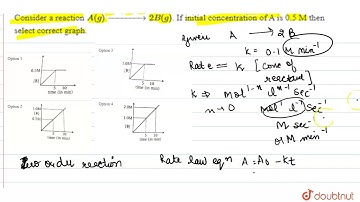 Consider a reaction A(g) ⟶ 2B(g). If initial concentration of A is 0.5 M then
select correct graph.
Option 1
Option 3
Option 2
Option 4
time (in min)
time (in min)
time (in min)
time (in min)
given A → 2B
k = 0.1 M min⁻¹
Rate = k [Conc of
reactant]
k ⇒ Mol¹⁻ⁿ lⁿ⁻¹ sec⁻¹
n → 0 Mol¹ l⁻¹ sec⁻¹
M sec⁻¹
or M min⁻¹
Zero order reaction Rate law eqn A = A₀ − kt
doubtnut